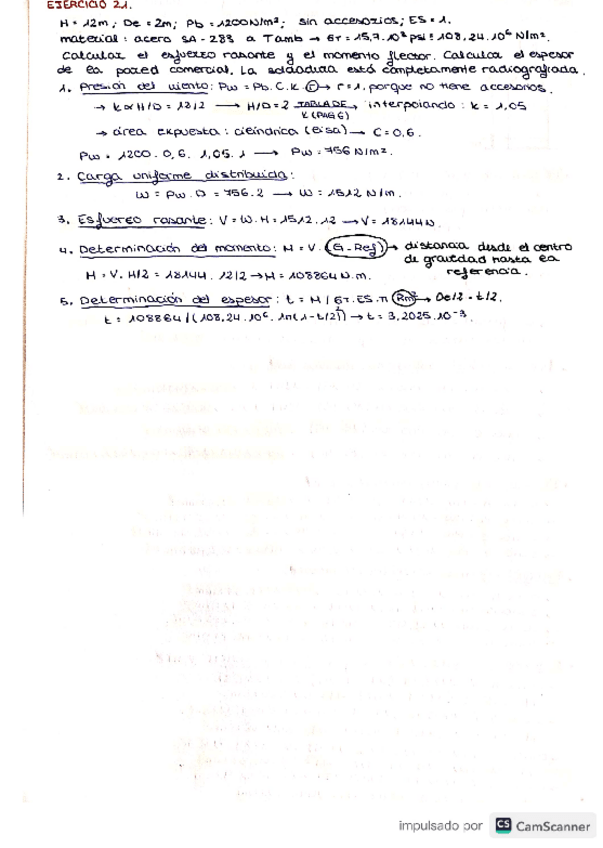 EJERCICIO 21.
H = 12m; De = 2m; Pb = 1200N/m²; sin accesorios; ES = 1.
material: acero SA-283 a Tamb → σT = 15,7.10³ psi = 108,24.10⁶ N/m².
Calcular el esfuerzo rasante y el momento flector. Calcular el espesor
de la pared comercial. La soldadura está completamente radiografiada.
1. Presión del viento: Pw = Pb.C.K.r → r=1, porque no tiene accesorios.
→ K ∝ H/D = 12/2 → H/D = 2 TABLA DE K (PAG 6) → interpolando: k = 1,05
→ área expuesta: cilíndrica (lisa) → C = 0,6.
Pw = 1200. 0,6. 1,05. 1 → Pw = 756 N/m².
2. Carga uniforme distribuida:
w = Pw. D = 756.2 → w = 1512 N/m.
3. Esfuerzo rasante: V = w. H = 1512.12 → V = 18144N.
4. Determinación del momento: M = V. (G-Ref) → distancia desde el centro
de gravedad hasta la
referencia.
M = V. H/2 = 18144. 12/2 → M = 108864 N.m.
5. Determinación del espesor: t = M / σT. ES. π Rm² → De/2 - t/2.
t = 108864/(108,24.10⁶. π(1-t/2)²) → t = 3,2025.10⁻³.
impulsado por CS CamScanner